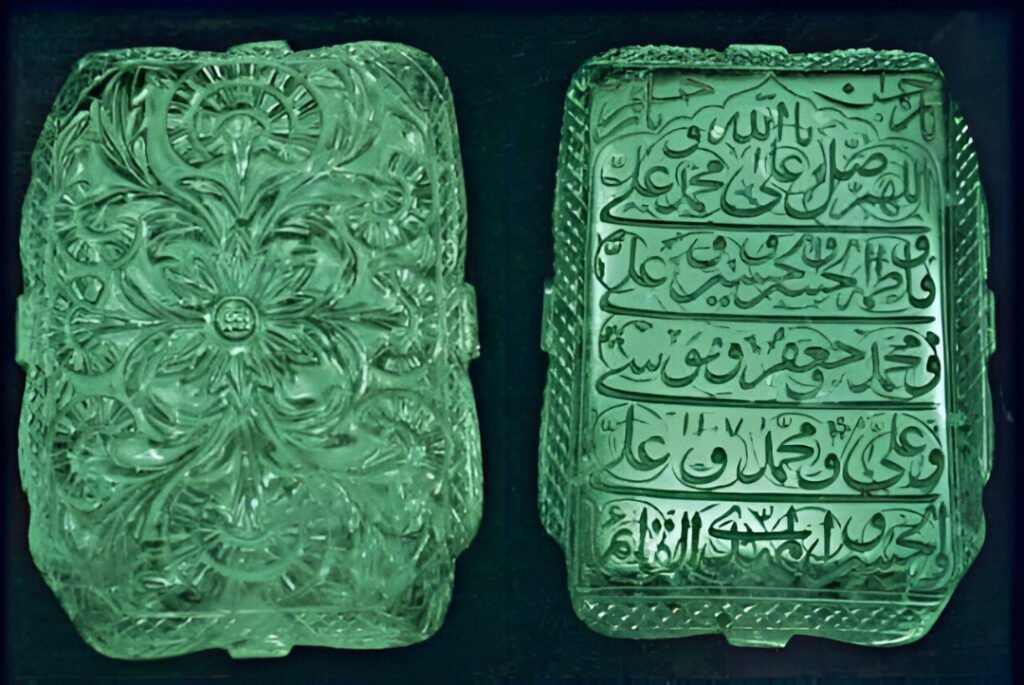 يا رحمن يا رحيم
يا الله
اللهم صل على محمد و علي
و فاطمة و الحسن و الحسين و علي
و محمد و جعفر و موسى
و علي و محمد و علي ١١٠٧
و الحسن و المهدي القائم